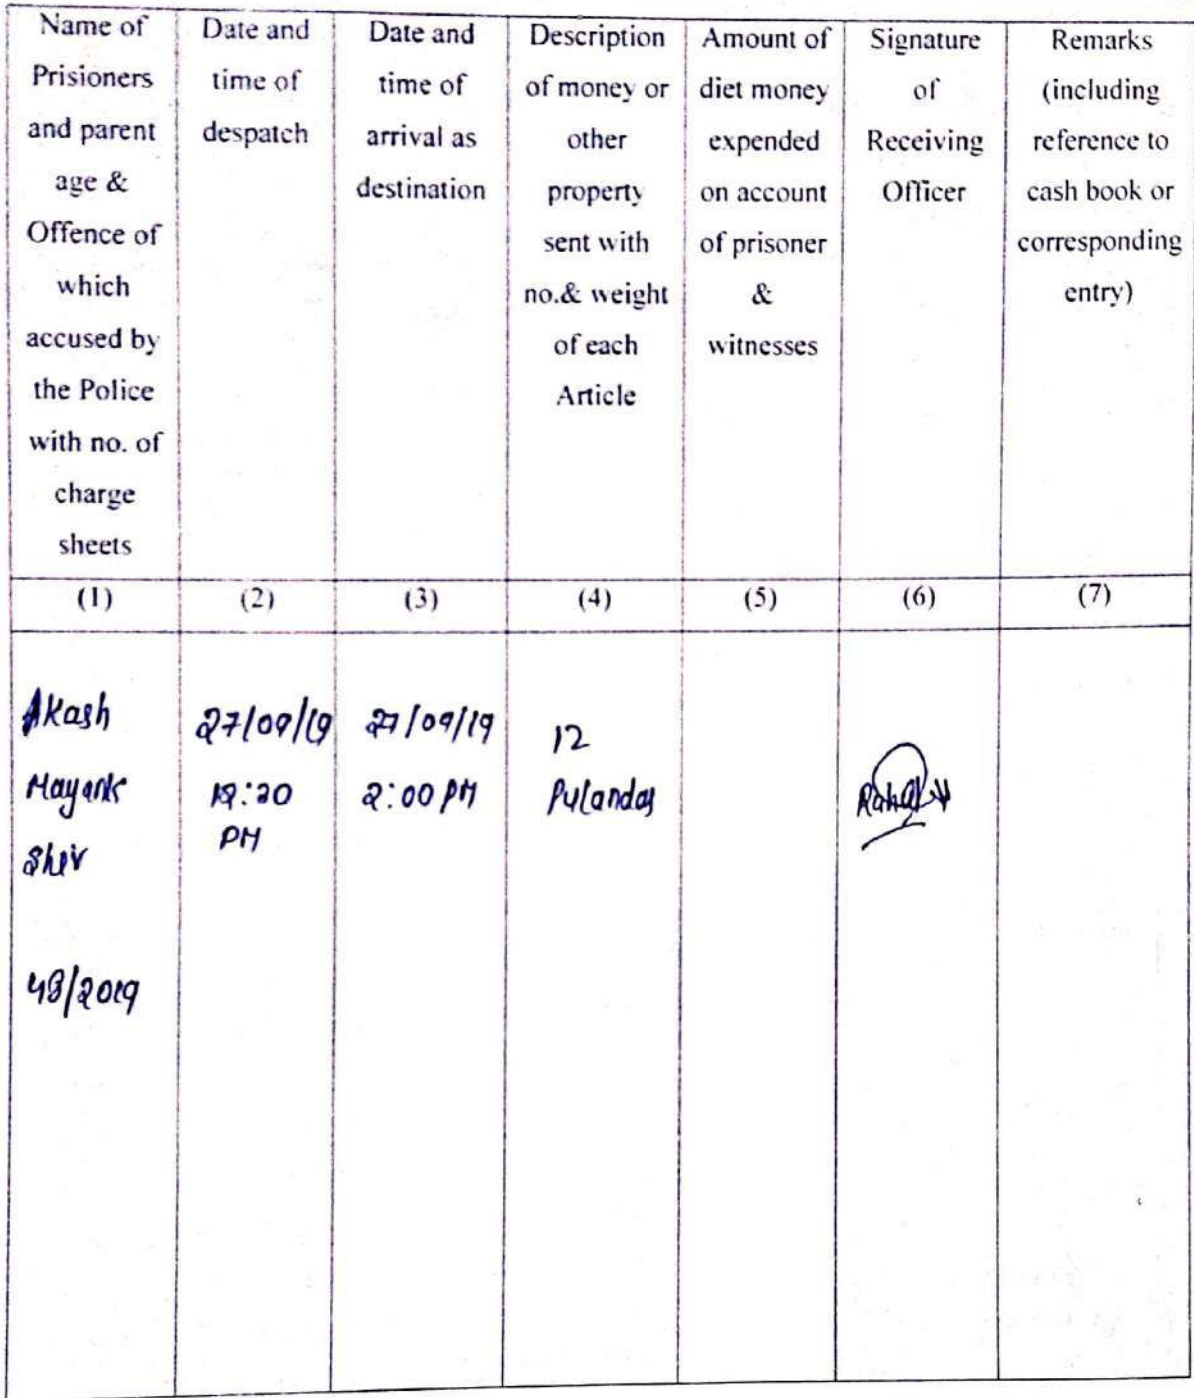 Name of Prisioners and parent age & Offence of which accused by the Police with no. of charge sheets
Date and time of despatch
Date and time of arrival as destination
Description of money or other property sent with no.& weight of each Article
Amount of diet money expended on account of prisoner & witnesses
Signature of Receiving Officer
Remarks (including reference to cash book or corresponding entry)
(1) (2) (3) (4) (5) (6) (7)
Akash
Mayank
Shiv
48/2019
27/09/19
12:20
PM
27/09/19
2:00 PM
12
Pulandas
Rahul